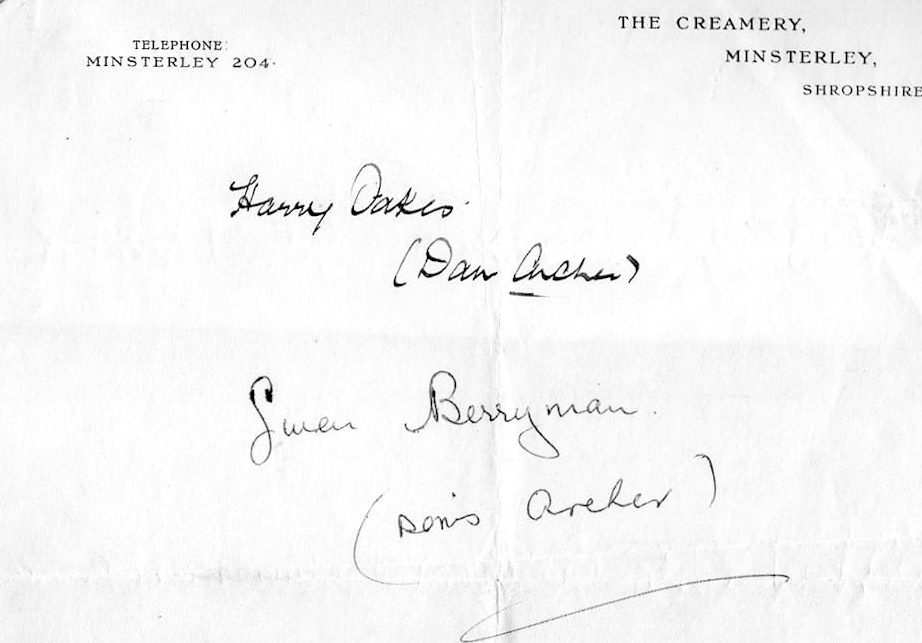 THE CREAMERY,
TELEPHONE:
MINSTERLEY 204.
MINSTERLEY,
SHROPSHIRE
Harry Oakes.
(Dan Archer)
Gwen Berryman.
(Doris Archer)